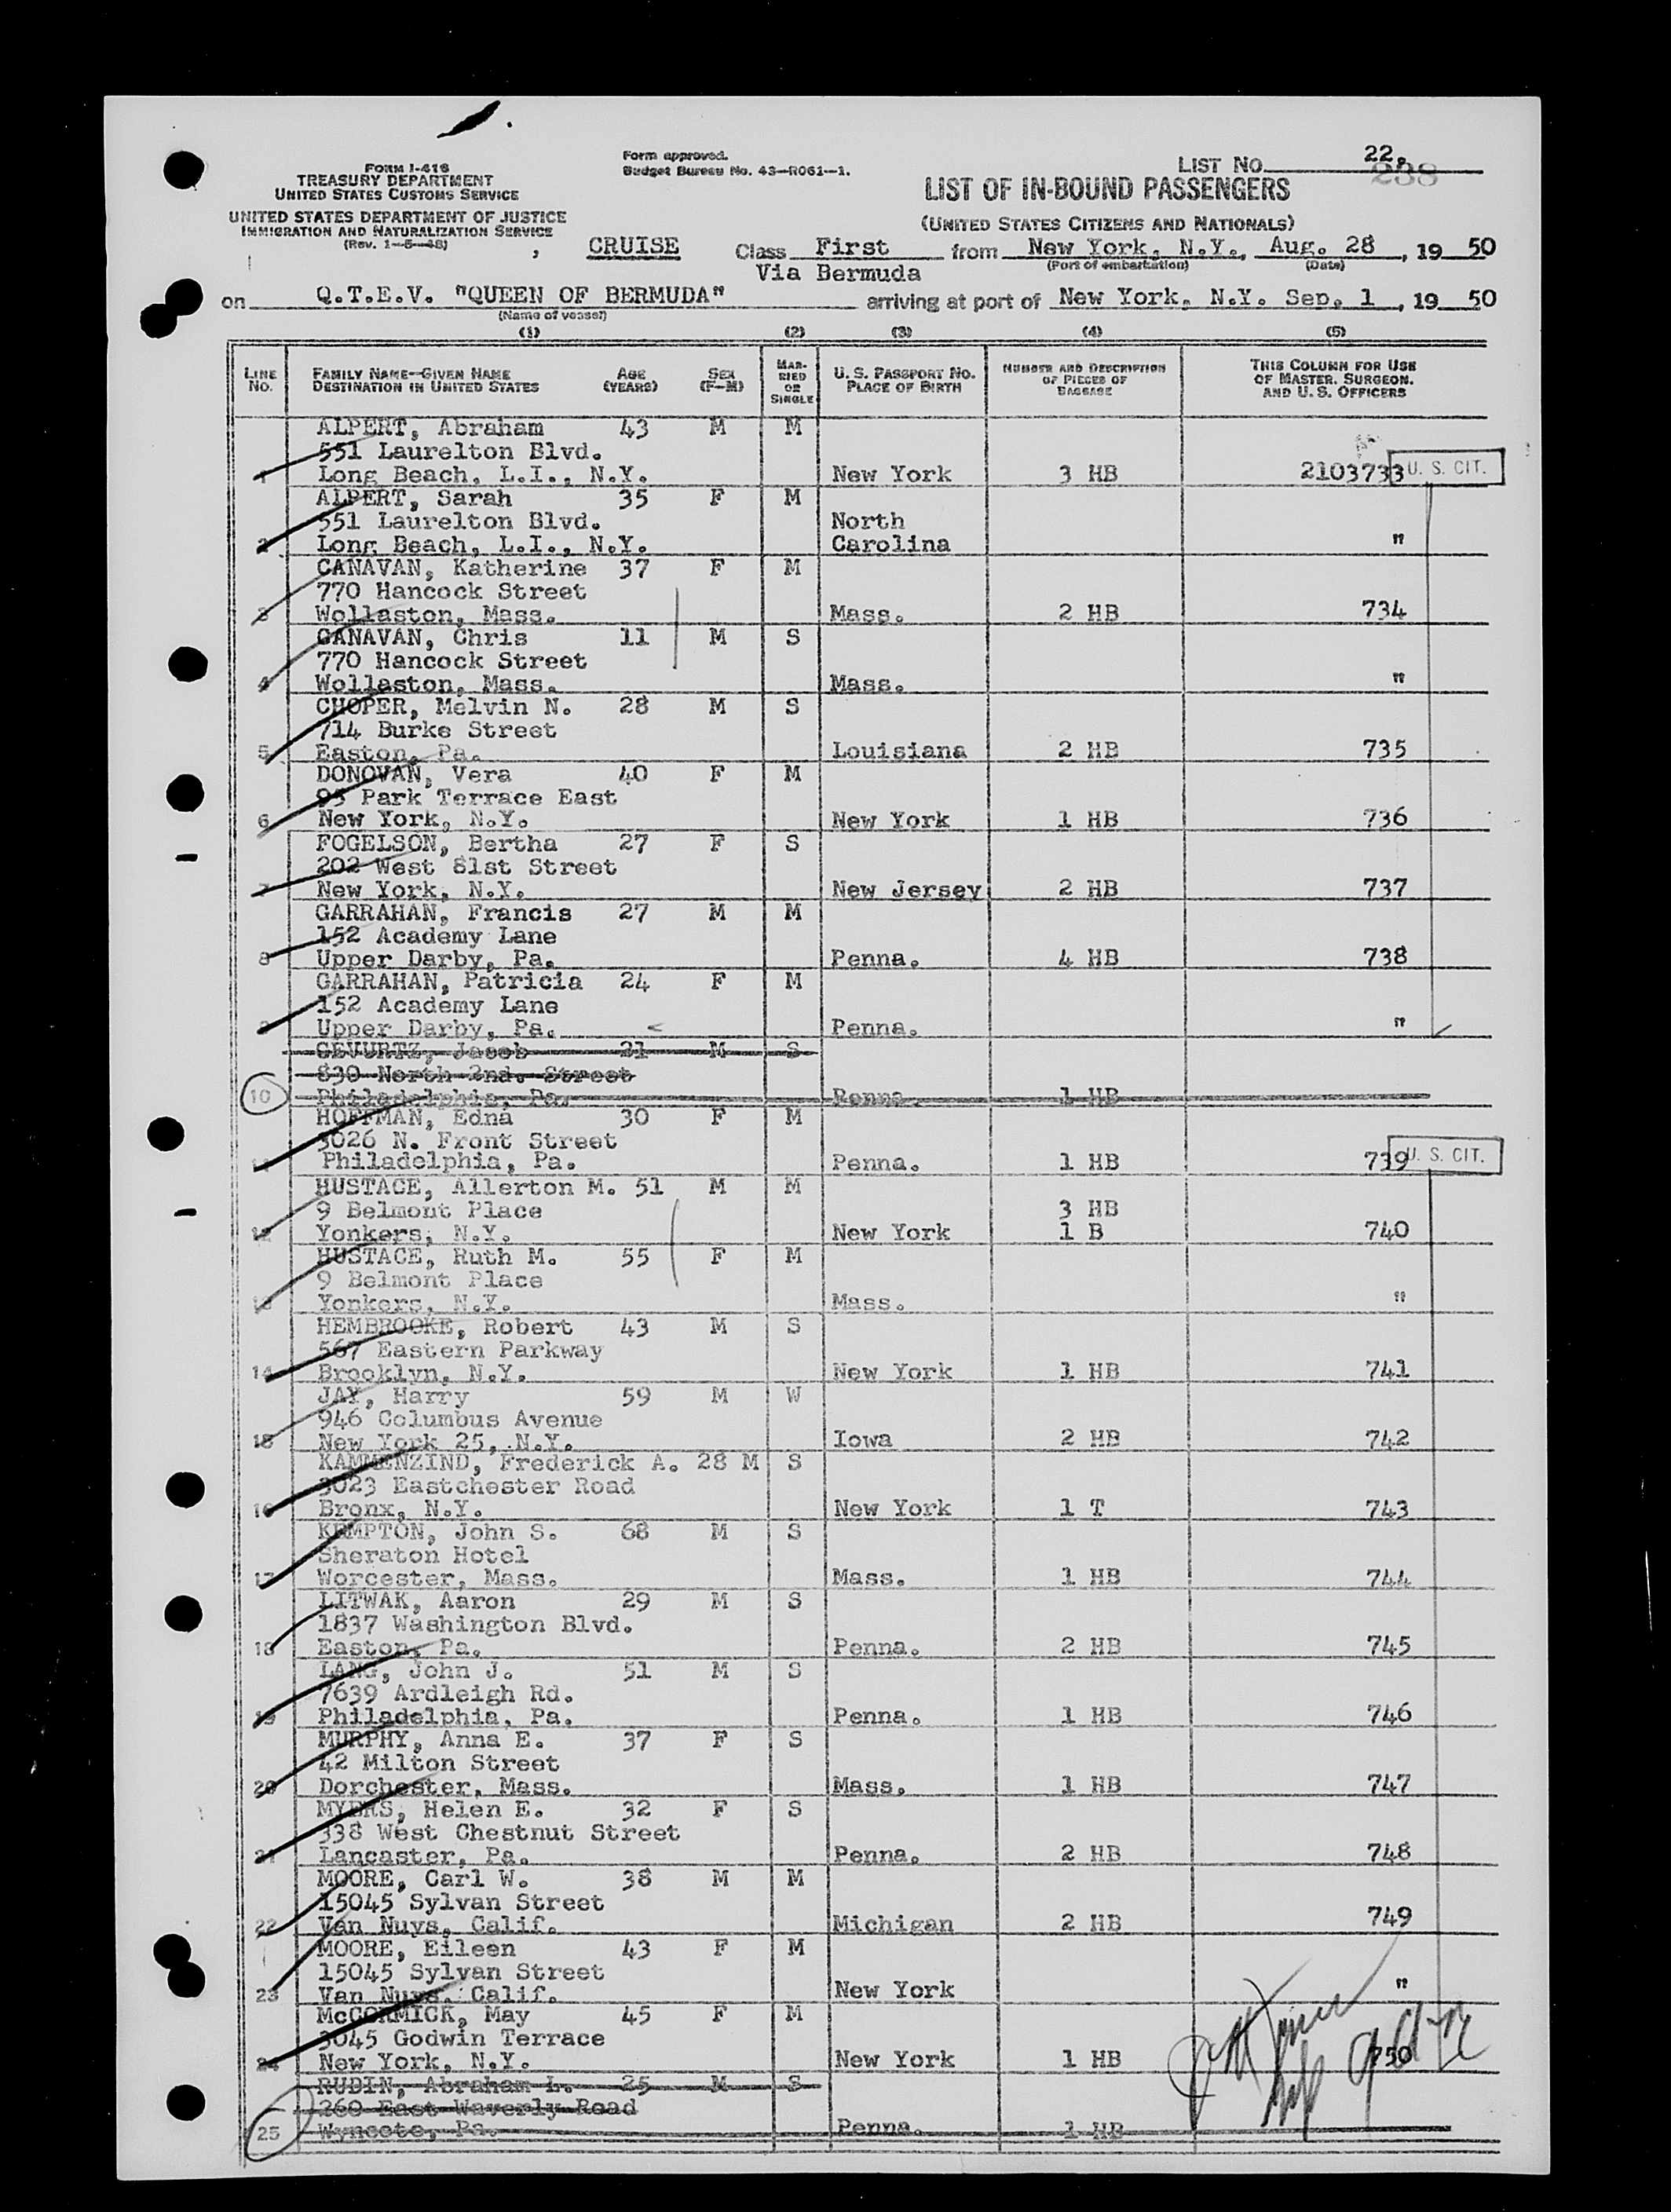 22.
238
LIST NO.
FORM I-418
TREASURY DEPARTMENT
UNITED STATES CUSTOMS SERVICE
UNITED STATES DEPARTMENT OF JUSTICE
IMMIGRATION AND NATURALIZATION SERVICE
(Rev. 1-5-48)
Form approved.
Budget Bureau No. 43-R061-1.
LIST OF IN-BOUND PASSENGERS
(UNITED STATES CITIZENS AND NATIONALS)
, CRUISE Class First from New York, N.Y., Aug. 28, 19 50
(Port of embarkation) (Date)
Via Bermuda
on Q.T.E.V. "QUEEN OF BERMUDA" arriving at port of New York, N.Y. Sep. 1, 19 50
(Name of vessel)
(1) (2) (3) (4) (5)
LINE NO. FAMILY NAME—GIVEN NAME DESTINATION IN UNITED STATES AGE (YEARS) SEX (F-M) MARRIED OR SINGLE U. S. PASSPORT NO. PLACE OF BIRTH NUMBER AND DESCRIPTION OF PIECES OF BAGGAGE THIS COLUMN FOR USE OF MASTER, SURGEON, AND U. S. OFFICERS
ALPERT, Abraham 43 M M
551 Laurelton Blvd.
1 Long Beach, L.I., N.Y. New York 3 HB 2103733 U. S. CIT.
ALPERT, Sarah 35 F M
551 Laurelton Blvd. North
2 Long Beach, L.I., N.Y. Carolina "
CANAVAN, Katherine 37 F M
770 Hancock Street
3 Wollaston, Mass. Mass. 2 HB 734
CANAVAN, Chris 11 M S
770 Hancock Street
4 Wollaston, Mass. Mass. "
CHOPER, Melvin N. 28 M S
714 Burke Street
5 Easton, Pa. Louisiana 2 HB 735
DONOVAN, Vera 40 F M
95 Park Terrace East
6 New York, N.Y. New York 1 HB 736
FOGELSON, Bertha 27 F S
202 West 81st Street
7 New York, N.Y. New Jersey 2 HB 737
GARRAHAN, Francis 27 M M
152 Academy Lane
8 Upper Darby, Pa. Penna. 4 HB 738
GARRAHAN, Patricia 24 F M
152 Academy Lane
9 Upper Darby, Pa. Penna. "
GEVURTZ, Jacob 21 M S
830 North 2nd. Street
10 Philadelphia, Pa. Penna. 1 HB
HOFFMAN, Edna 30 F M
3026 N. Front Street
11 Philadelphia, Pa. Penna. 1 HB 739 U. S. CIT.
HUSTACE, Allerton M. 51 M M
9 Belmont Place 3 HB
12 Yonkers, N.Y. New York 1 B 740
HUSTACE, Ruth M. 55 F M
9 Belmont Place
13 Yonkers, N.Y. Mass. "
HEMBROOKE, Robert 43 M S
567 Eastern Parkway
14 Brooklyn, N.Y. New York 1 HB 741
JAY, Harry 59 M W
946 Columbus Avenue
15 New York 25, N.Y. Iowa 2 HB 742
KAMMENZIND, Frederick A. 28 M S
3023 Eastchester Road
16 Bronx, N.Y. New York 1 T 743
KEMPTON, John S. 68 M S
Sheraton Hotel
17 Worcester, Mass. Mass. 1 HB 744
LITWAK, Aaron 29 M S
1837 Washington Blvd.
18 Easton, Pa. Penna. 2 HB 745
LANG, John J. 51 M S
7639 Ardleigh Rd.
19 Philadelphia, Pa. Penna. 1 HB 746
MURPHY, Anna E. 37 F S
42 Milton Street
20 Dorchester, Mass. Mass. 1 HB 747
MYERS, Helen E. 32 F S
338 West Chestnut Street
21 Lancaster, Pa. Penna. 2 HB 748
MOORE, Carl W. 38 M M
15045 Sylvan Street
22 Van Nuys, Calif. Michigan 2 HB 749
MOORE, Eileen 43 F M
15045 Sylvan Street
23 Van Nuys, Calif. New York "
McCORMICK, May 45 F M
3045 Godwin Terrace
24 New York, N.Y. New York 1 HB 750
RUDIN, Abraham L. 25 M S
260 East Waverly Road
25 Wyncote, Pa. Penna. 1 HB